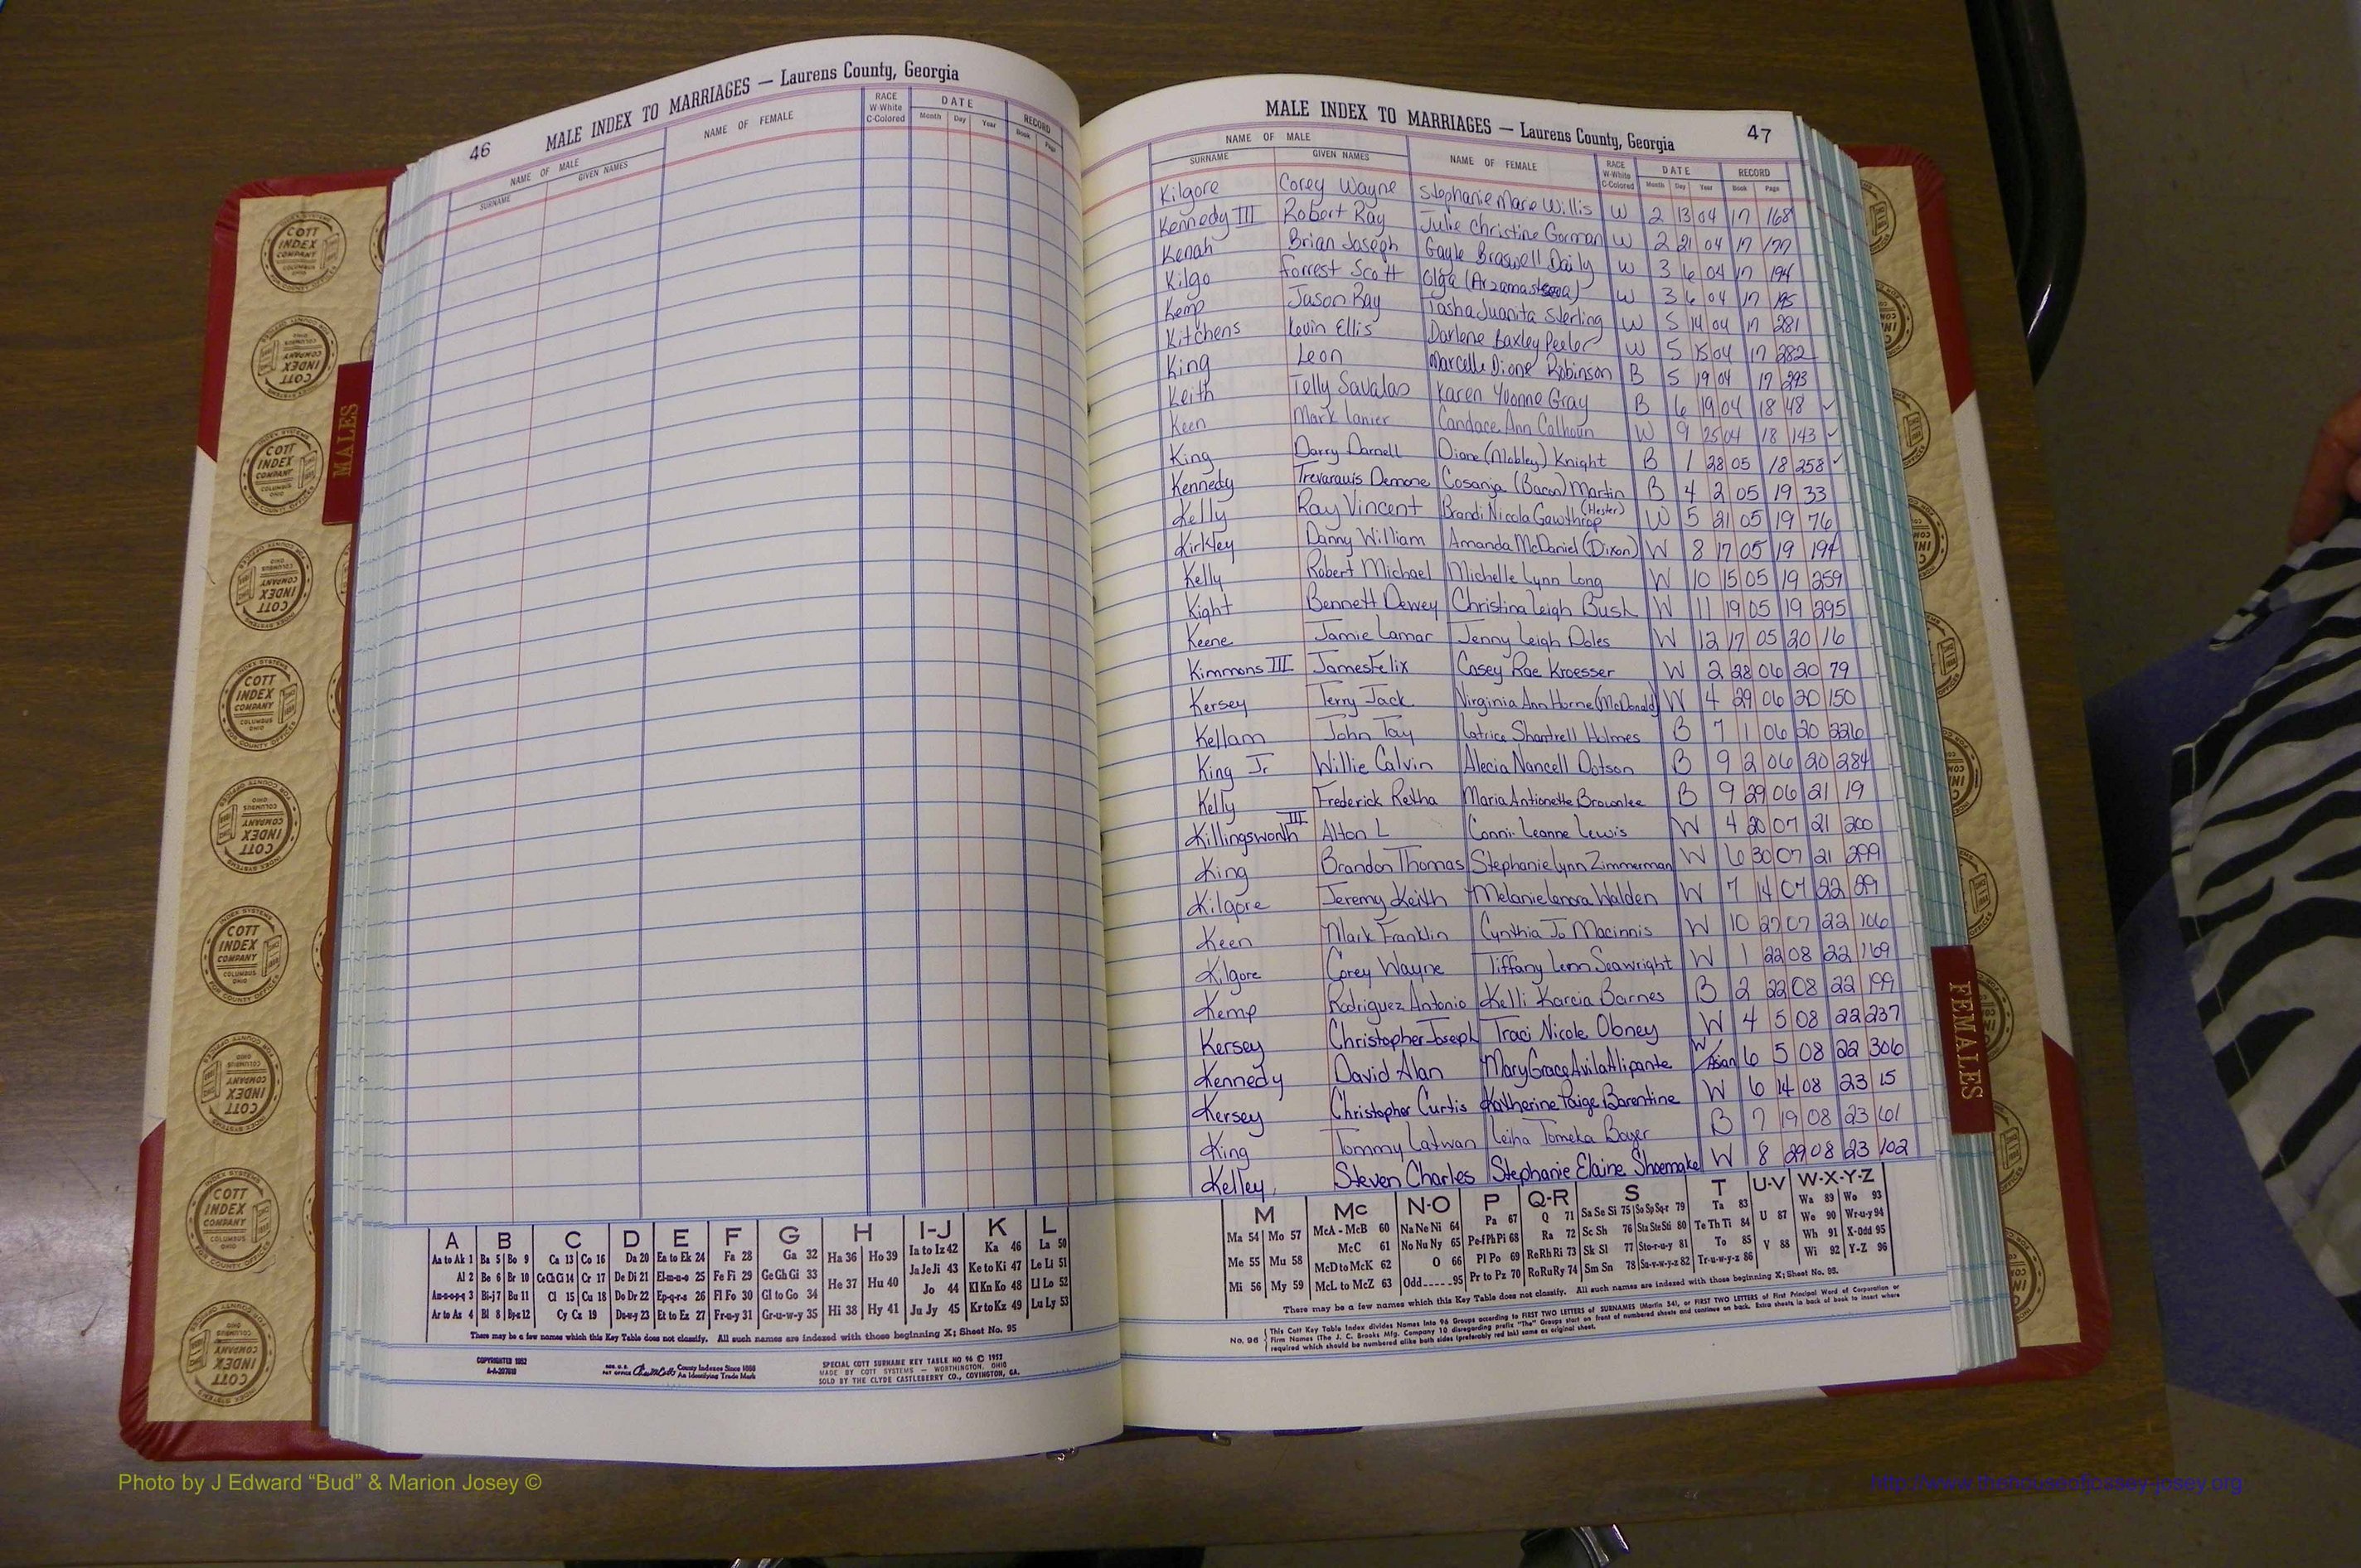 46
MALE INDEX TO MARRIAGES — Laurens County, Georgia
NAME OF MALE
NAME OF FEMALE
RACE W-White C-Colored
DATE
RECORD
SURNAME GIVEN NAMES Month Day Year Book Page
MALES
COTT INDEX COMPANY COLUMBUS OHIO
INDEX SYSTEMS FOR COUNTY OFFICES
A B C D E F G H I-J K L
Aa to Ak 1 Ba 5 Bo 9 Ca 13 Co 16 Da 20 Ea to Ek 24 Fa 28 Ga 32 Ha 36 Ho 39 Ia to Iz 42 Ka 46 La 50
Al 2 Be 6 Br 10 Ce Ch Ci 14 Cr 17 De Di 21 El-m-n-o 25 Fe Fi 29 Ge Gh Gi 33 He 37 Hu 40 Ja Je Ji 43 Ke to Ki 47 Le Li 51
Am-n-o-p-q 3 Bi-j 7 Bu 11 Cl 15 Cu 18 Do Dr 22 Ep-q-r-s 26 Fl Fo 30 Gl to Go 34 Jo 44 Kl Kn Ko 48 Ll Lo 52
Ar to As 4 Bl 8 By-z 12 Cy Cz 19 Du-w-y 23 Et to Ez 27 Fr-u-y 31 Gr-u-w-y 35 Hi 38 Hy 41 Ju Jy 45 Kr to Kz 49 Lu Ly 53
There may be a few names which this Key Table does not classify. All such names are indexed with those beginning X; Sheet No. 95
COPYRIGHTED 1952
County Indexes Since 1888
An Identifying Trade Mark
SPECIAL COTT SURNAME KEY TABLE NO 96 © 1952
MADE BY COTT SYSTEMS — WORTHINGTON, OHIO
SOLD BY THE CLYDE CASTLEBERRY CO., COVINGTON, GA.
MALE INDEX TO MARRIAGES — Laurens County, Georgia
47
NAME OF MALE
NAME OF FEMALE
RACE W-White C-Colored
DATE
RECORD
SURNAME GIVEN NAMES Month Day Year Book Page
Kilgore Corey Wayne Stephanie Marie Willis W 2 13 04 17 168
Kennedy III Robert Ray Julie Christine Gorman W 2 21 04 17 177
Kenah Brian Joseph Gayle Braswell Daily W 3 6 04 17 194
Kilgo Forrest Scott Olga W 3 6 04 17 195
Kemp Jason Ray Tasha Juanita Sterling W 5 14 04 17 281
Kitchens Kevin Ellis Darlene Baxley Peeler W 5 15 04 17 282
King Leon Marcelle Dione Robinson B 5 19 04 17 293
Keith Telly Savalas Karen Yvonne Gray B 6 19 04 18 48 ✓
Keen Mark Lanier Candace Ann Calhoun W 9 25 04 18 143 ✓
King Darry Darnell Diane (Mobley) Knight B 1 28 05 18 258 ✓
Kennedy Trevarauis Demone Cosanja (Bacon) Martin B 4 2 05 19 33
Kelly Ray Vincent Brandi Nicola Gawthrop (Hester) W 5 21 05 19 76
Kirkley Danny William Amanda McDaniel (Dixon) W 8 17 05 19 194
Kelly Robert Michael Michelle Lynn Long W 10 15 05 19 259
Kight Bennett Dewey Christina Leigh Bush W 11 19 05 19 295
Keene Jamie Lamar Jenny Leigh Doles W 12 17 05 20 16
Kimmons III James Felix Casey Rae Kroesser W 2 28 06 20 79
Kersey Terry Jack Virginia Ann Horne (McDonald) W 4 29 06 20 150
Kellam John Tay Latrice Shantrell Holmes B 7 1 06 20 226
King Jr Willie Calvin Alecia Nancell Dotson B 9 2 06 20 284
Kelly Frederick Reitha Maria Antionette Brownlee B 9 29 06 21 19
Killingsworth III Alton L Conni Leanne Lewis W 4 20 07 21 200
King Brandon Thomas Stephanie Lynn Zimmerman W 6 30 07 21 299
Kilgore Jeremy Keith Melanie Lenora Walden W 7 14 07 22 29
Keen Mark Franklin Cynthia Jo Macinnis W 10 27 07 22 106
Kilgore Corey Wayne Tiffany Lenn Seawright W 1 22 08 22 169
Kemp Rodriguez Antonio Kelli Karcia Barnes B 2 22 08 22 199
Kersey Christopher Joseph Traci Nicole Obney W 4 5 08 22 237
Kennedy David Alan Mary Grace Avila Alipante W/Asian 6 5 08 22 306
Kersey Christopher Curtis Katherine Paige Barentine W 6 14 08 23 15
King Tommy Latwan Leiha Tomeka Boyer B 7 19 08 23 61
Kelley Steven Charles Stephanie Elaine Shoemake W 8 29 08 23 102
M Mc N-O P Q-R S T U-V W-X-Y-Z
Ma 54 Mo 57 McA - McB 60 Na Ne Ni 64 Pa 67 Q 71 Sa Se Si 75 So Sp Sq-r 79 Ta 83 U 87 Wa 89 Wo 93
Me 55 Mu 58 McC 61 No Nu Ny 65 Pe-f Ph Pi 68 Ra 72 Sc Sh 76 Sta Ste Sti 80 Te Th Ti 84 We 90 Wr-u-y 94
McD to McK 62 O 66 Pl Po 69 Re Rh Ri 73 Sk Sl 77 Sto-r-u-y 81 To 85 V 88 Wh 91 X-Odd 95
Mi 56 My 59 McL to McZ 63 Odd-----95 Pr to Pz 70 Ro Ru Ry 74 Sm Sn 78 Su-v-w-y-z 82 Tr-u-w-y-z 86 Wi 92 Y-Z 96
There may be a few names which this Key Table does not classify. All such names are indexed with those beginning X; Sheet No. 95.
No. 96 This Cott Key Table Index divides Names into 96 Groups according to FIRST TWO LETTERS of SURNAMES (Martin 54), or FIRST TWO LETTERS of First Principal Word of Corporation or
Firm Names (The J. C. Brooks Mfg. Company 10 disregarding prefix "The" Groups start on front of numbered sheets and continue on back. Extra sheets in back of book to insert where
required which should be numbered alike both sides (preferably red ink) same as original sheet.
FEMALES
Photo by J Edward “Bud” & Marion Josey ©
http://www.thehouseofjossey-josey.org